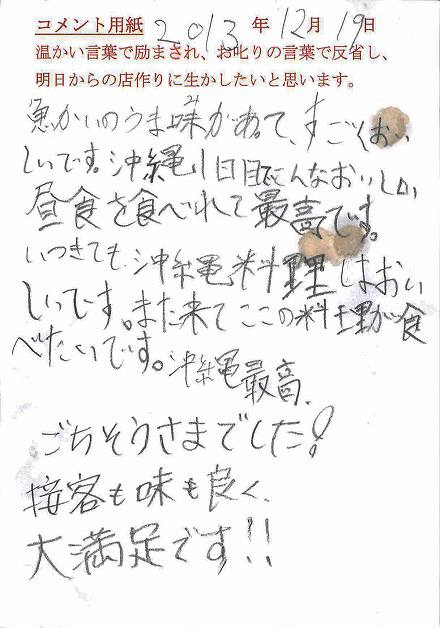 コメント用紙 2013年12月19日
温かい言葉で励まされ、お叱りの言葉で反省し、
明日からの店作りに生かしたいと思います。
魚かいのうま味があって、すごくおい
しいです。沖縄1日目でこんなおいしい
昼食を食べれて最高です。
いつきても沖縄料理はおい
しいです。また来てここの料理が食
べたいです。沖縄最高。
ごちそうさまでした!
接客も味も良く、
大満足です!!